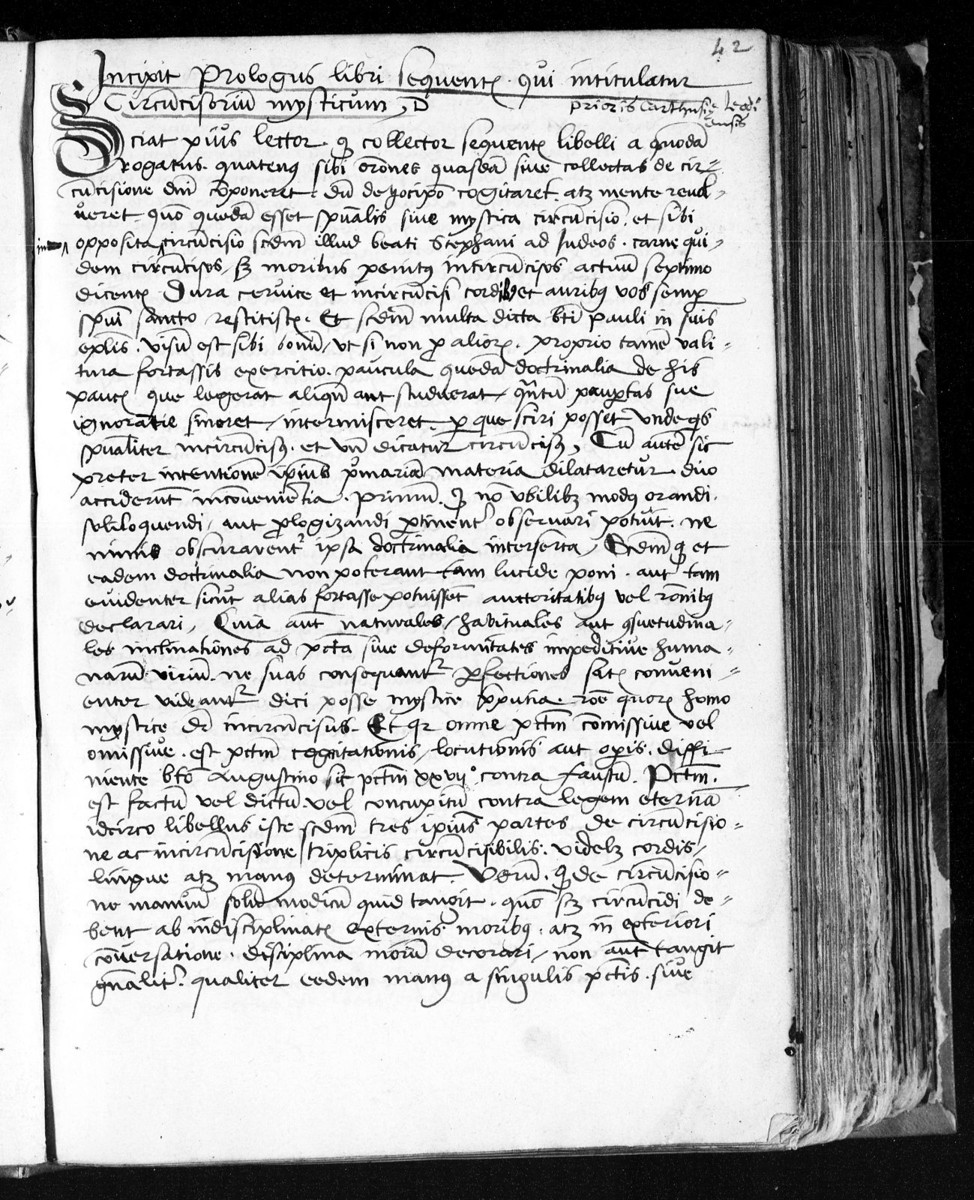 42
Incipit Prologus libri sequentꝭ qui intitulatur
Circūcisoriū mysticum,
prioris carthusiē leodi
ensis
Sciat pius lector ꝙ collector sequentꝭ libelli a quodā
rogatus. quatenꝰ sibi orōnes quasdā siue collectas de cir=
cūcisione dn̄i cōponeret. dū de ꝓcipō cogitaret. atqꝫ mente reuol=
ueret. quō quedā esset spūalis siue mystica circūcisio. et sibi
opposita circūcisio scdm̄ illud beati Stephani ad Iudeos. carne qui=
dem circūcisos sꝫ moribus penitꝰ incircūcisos actuū septimo
dicentꝭ Dura ceruice et incircūcisi cordibꝰ et auribꝰ vos semꝑ
spūi sancto restitistꝭ. Et scdm̄ multa dicta bt̄i pauli in suis
ep̄lis. visū est sibi bonū, vt si non ꝓ alioꝝ. proprio tamē vali=
tura fortassis exercitio. paucula quedā doctrinalia de his
paucꝭ que legerat aliqn̄ aut studuerat, qn̄tū pauꝑtas sue
ignorātie sineret, intermisceret. ꝑ que sciri posset vnde qͥs
spūaliter incircūcisꝰ. et vn̄ dicatur circūcisꝰ, Cū autē sic
preter intentionē ipsius pͥmariā materia dilataretur. duo
acciderūt incōueniētia. Primū. ꝙ nō vbilibꝫ modꝰ orandi.
soliloquendi, aut ꝓlogizandi ꝑtinentʳ obseruari potuit. ne
nimis obscurarentʳ ipsa doctrinalia inserta, Scdm̄ ꝙ et
eadem doctrinalia non poterant tam lucide poni. aut tam
euidenter sicut alias fortasse potuissēt auctoritatibꝰ vel rōnibꝰ
declarari, Quia aut̄ naturales, habituales aut ꝯsuetudina=
les inclinationes ad pctā̄ siue deformitates impeditiue huma=
narū viriū. ne suas consequantʳ ꝑfectiones satꝭ conueni=
enter videantʳ dici posse mystice p̄putia. rōe quoꝝ homo
mystice dr̄ incircūcisus. Et qꝛ omne pctm̄ cōmissiue vel
omissiue. est pctm̄ cogitationis, locutionis aut oꝑis. diffi=
niente bt̄o Augustino sic pctm̄ xxvij° contra faustū. Pctm̄.
est factū vel dictū. vel concupitū contra legem eternā
idcirco libellus iste scdm̄ tres ipsius partes de circūcisio=
ne ac incircūcisione triplicis circūcisibilis. videlꝫ cordis,
lingue atqꝫ manꝰ determinat. Verū. ꝙ de circūcisio=
ne manuū solū modicū quid tangit. quō sꝫ circūcidi de=
bent ab indisciplinatꝭ externis moribꝰ. atqꝫ in exteriori
cōuersatione. disciplina morū decorari, non aut̄ tangit
gn̄alit̄. qualiter eedem manꝰ a singulis pctīs. siue